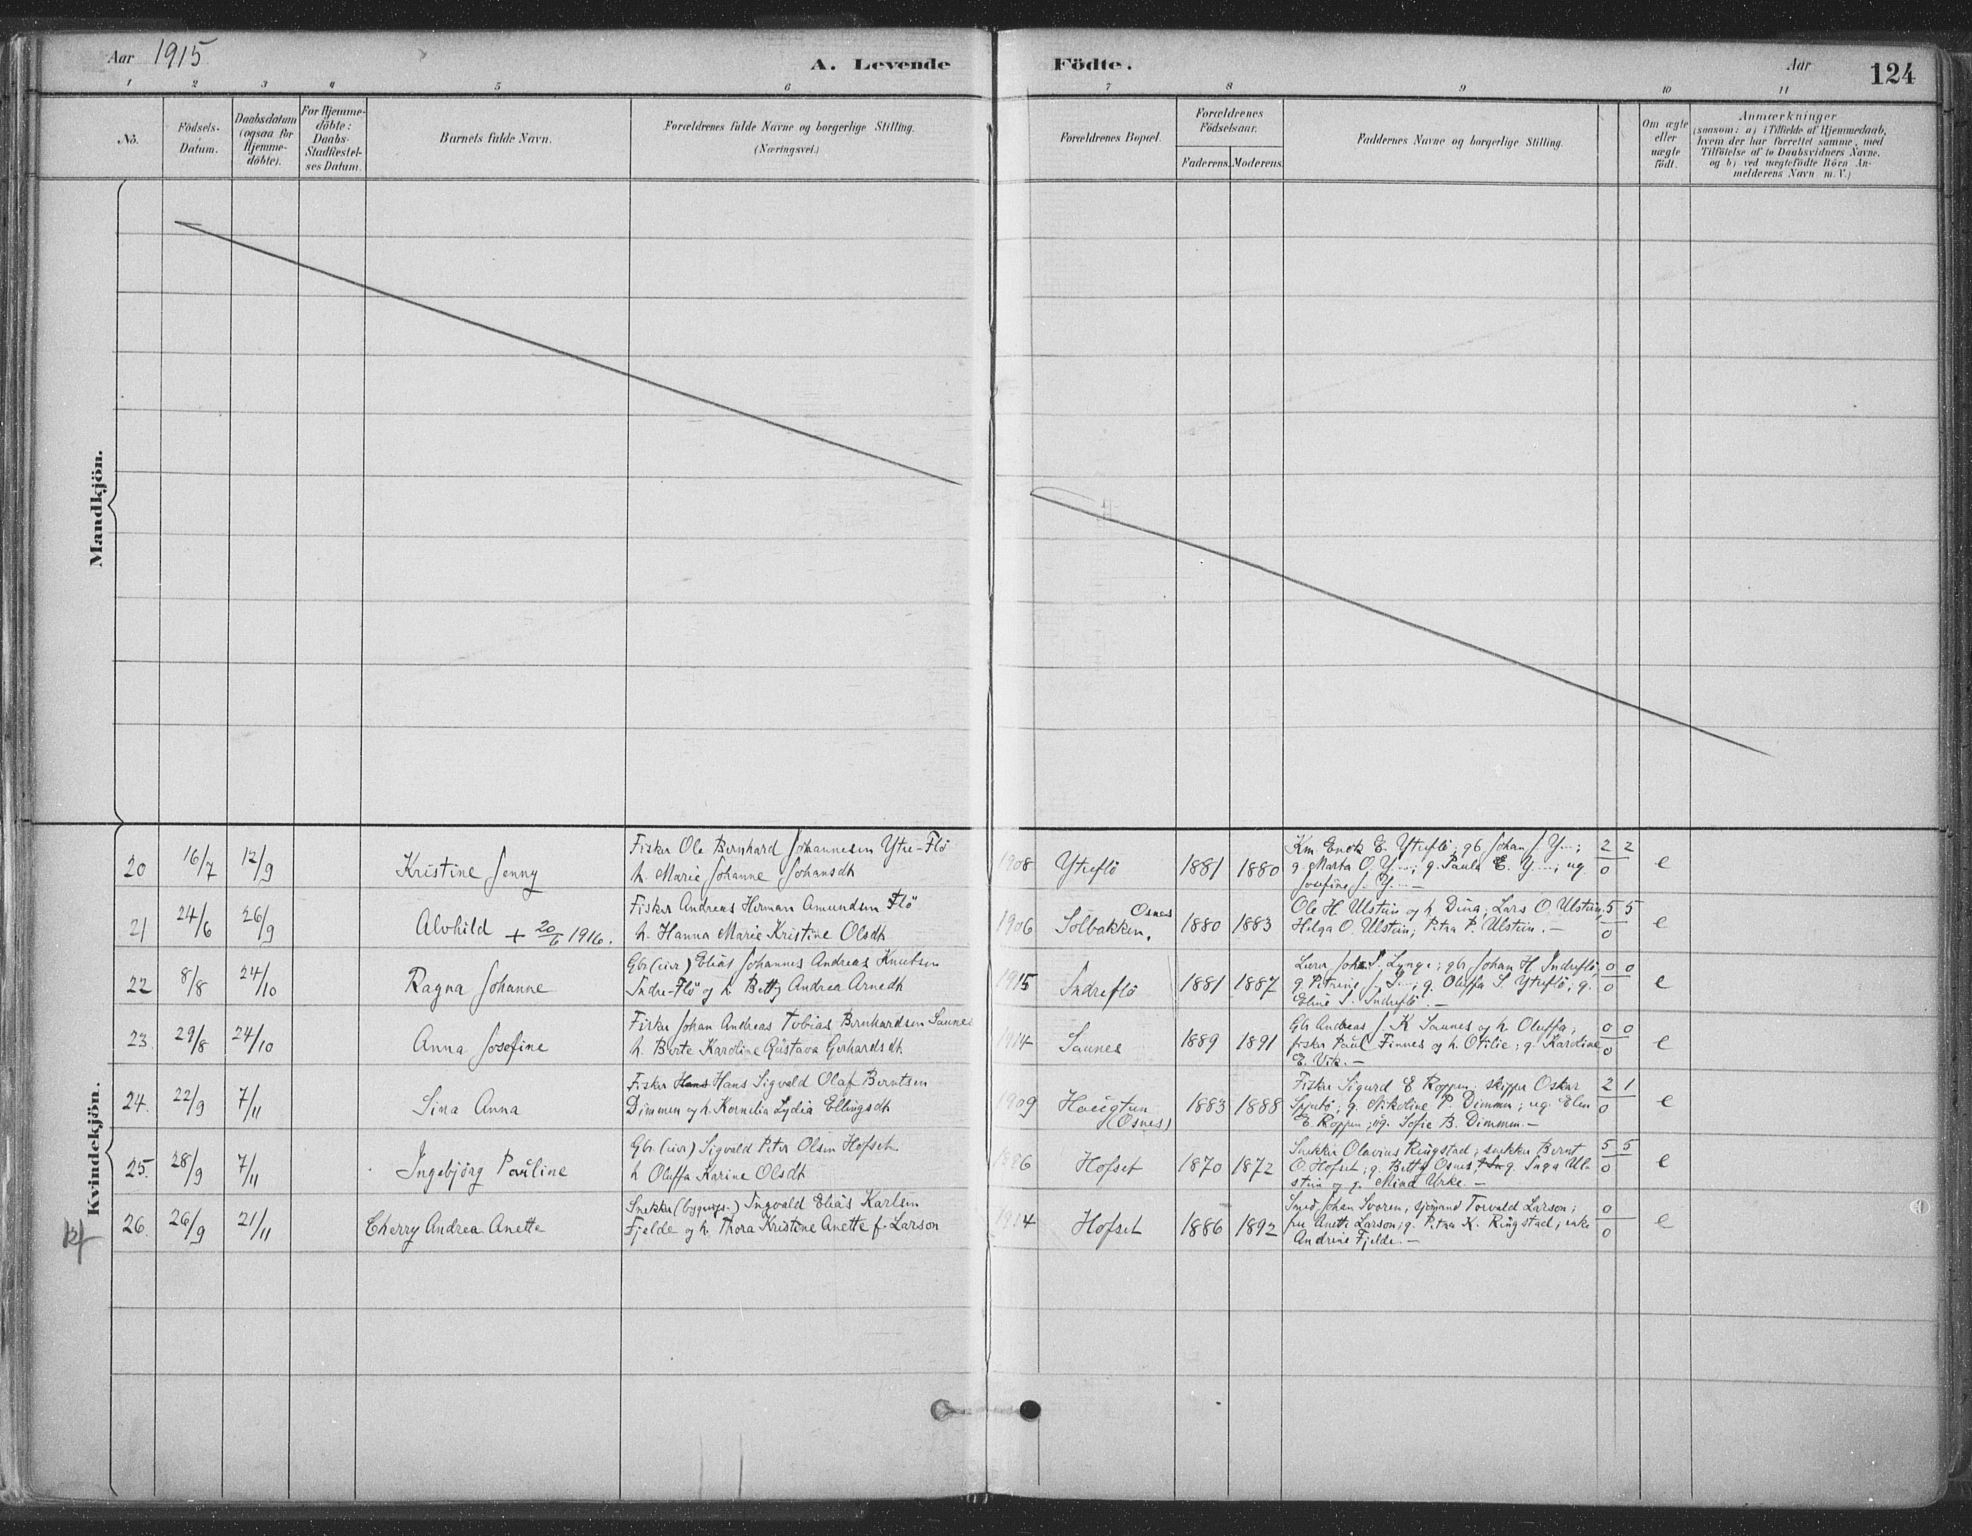 Aar 1915
A. Levende Födte.
Aar 124
1 2 3 4 5 6 7 8 9 10 11
No.
Födsels-
Datum.
Daabsdatum
(ogsaa for
Hjemme-
döbte).
For Hjemme-
döbte:
Daabs-
Stadfæstel-
ses Datum.
Barnets fulde Navn.
Forældrenes fulde Navne og borgerlige Stilling.
(Næringsvei.)
Forældrenes Bopæl.
Forældrenes
Födselsaar.
Faderens. Moderens.
Faddernes Navne og borgerlige Stilling.
Om ægte
eller
uægte
födt.
Anmærkninger
(saasom: a) i Tilfælde af Hjemmedaab,
hvem der har forrettet samme, med
Tilföielse af to Daabsvidners Navne,
og b) ved uægtefödte Börn An-
melderens Navn m. V.)
Mandkjön.
Kvindekjön.
20 16/7 12/9 Kristine Jenny
Fisker Ole Bernhard Johannesen Ytre-Flö
h. Marie Johanne Johansdt
1908 Ytreflö 1881 1880
Km Enok E. Ytreflö; gb. Johan J. Y--;
g. Marta O. Y--; g. Paula E. Y--; ug
Josefine J. Y-- –
2 2
0
e
21 24/6 26/9 Alvhild + 20/6 1916.
Fisker Andreas Herman Amundsen Flö
h. Hanna Marie Kristine Olsdt
1906 Solbakken, Osnes 1880 1883
Ole H. Ulstein og h. Dina; Lars O. Ulstein,
Helga O. Ulstein; Petra P. Ulstein. –
5 5
0
e
22 8/8 24/10 Ragna Johanne
Gbr (eier) Elias Johannes Andreas Knutsen
Indre-Flö og h. Betty Andrea Arnedt
1915 Indreflö 1881 1887
Lærer Joh. S. Lynge; gbr Johan H. Indreflö,
g. Petrine J. I--; g. Oluffa S. Ytreflö; g.
Eline S. Indreflö. –
0 0
0
e
23. 29/8 24/10 Anna Josefine
Fisker Johan Andreas Tobias Bernhardsen Saunes
h. Berte Karoline Gustava Gerhardsdt
1914 Saunes 1889 1891
Gbr Andreas J. K. Saunes og h. Oluffa;
fisker Paul Finnes og h. Otilie; g. Karoline
E. Vik. –
0 0
0
e
24. 22/9 7/11 Sina Anna
Fisker Hans Hans Sigvald Olaf Berntsen
Dimmen og h. Kornelia Lydia Ellingsdt
1909 Haugtun (Osnes) 1883 1888
Fisker Sigurd E. Roppen; skipper Oskar
Spjutö; g. Nikoline P. Dimmen; ug. Elen
E. Roppen; ug. Sofie B. Dimmen. –
2 1
0
e
25. 28/9 7/11 Ingebjörg Pauline
Gbr. (eier) Sigvald Peter Olsen Hofset
h Oluffa Karine Olsdt
1896 Hofset 1870 1872
Snekker Olavius Ringstad; snekker Bernt
O. Hofset; g. Betty Osnes, g. Inga Ul-
stein og g. Mina Urke. –
5 5
0
e
26. 26/9 21/11 Cherry Andrea Anette
Snekker (bygnings-) Ingvald Elias Karlsen
Fjelde og h. Thora Kristine Anette f. Larson
1914 Hofset 1886 1892
Smed Johan Svoren; sjömand Torvald Larson;
fru Anette Larson; g. Petra K. Ringstad; enke
Andrine Fjelde. –
0
0
e